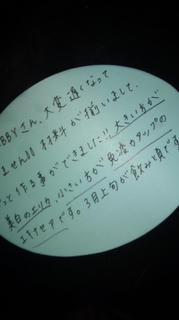 BBYさん、大変遅くなって
ません!!! 材料が揃いました。
って作る事ができました!!、大きい方が
美白のエリカ、小さい方が免疫力アップの
エキナセアです。3月上旬が飲み頃です